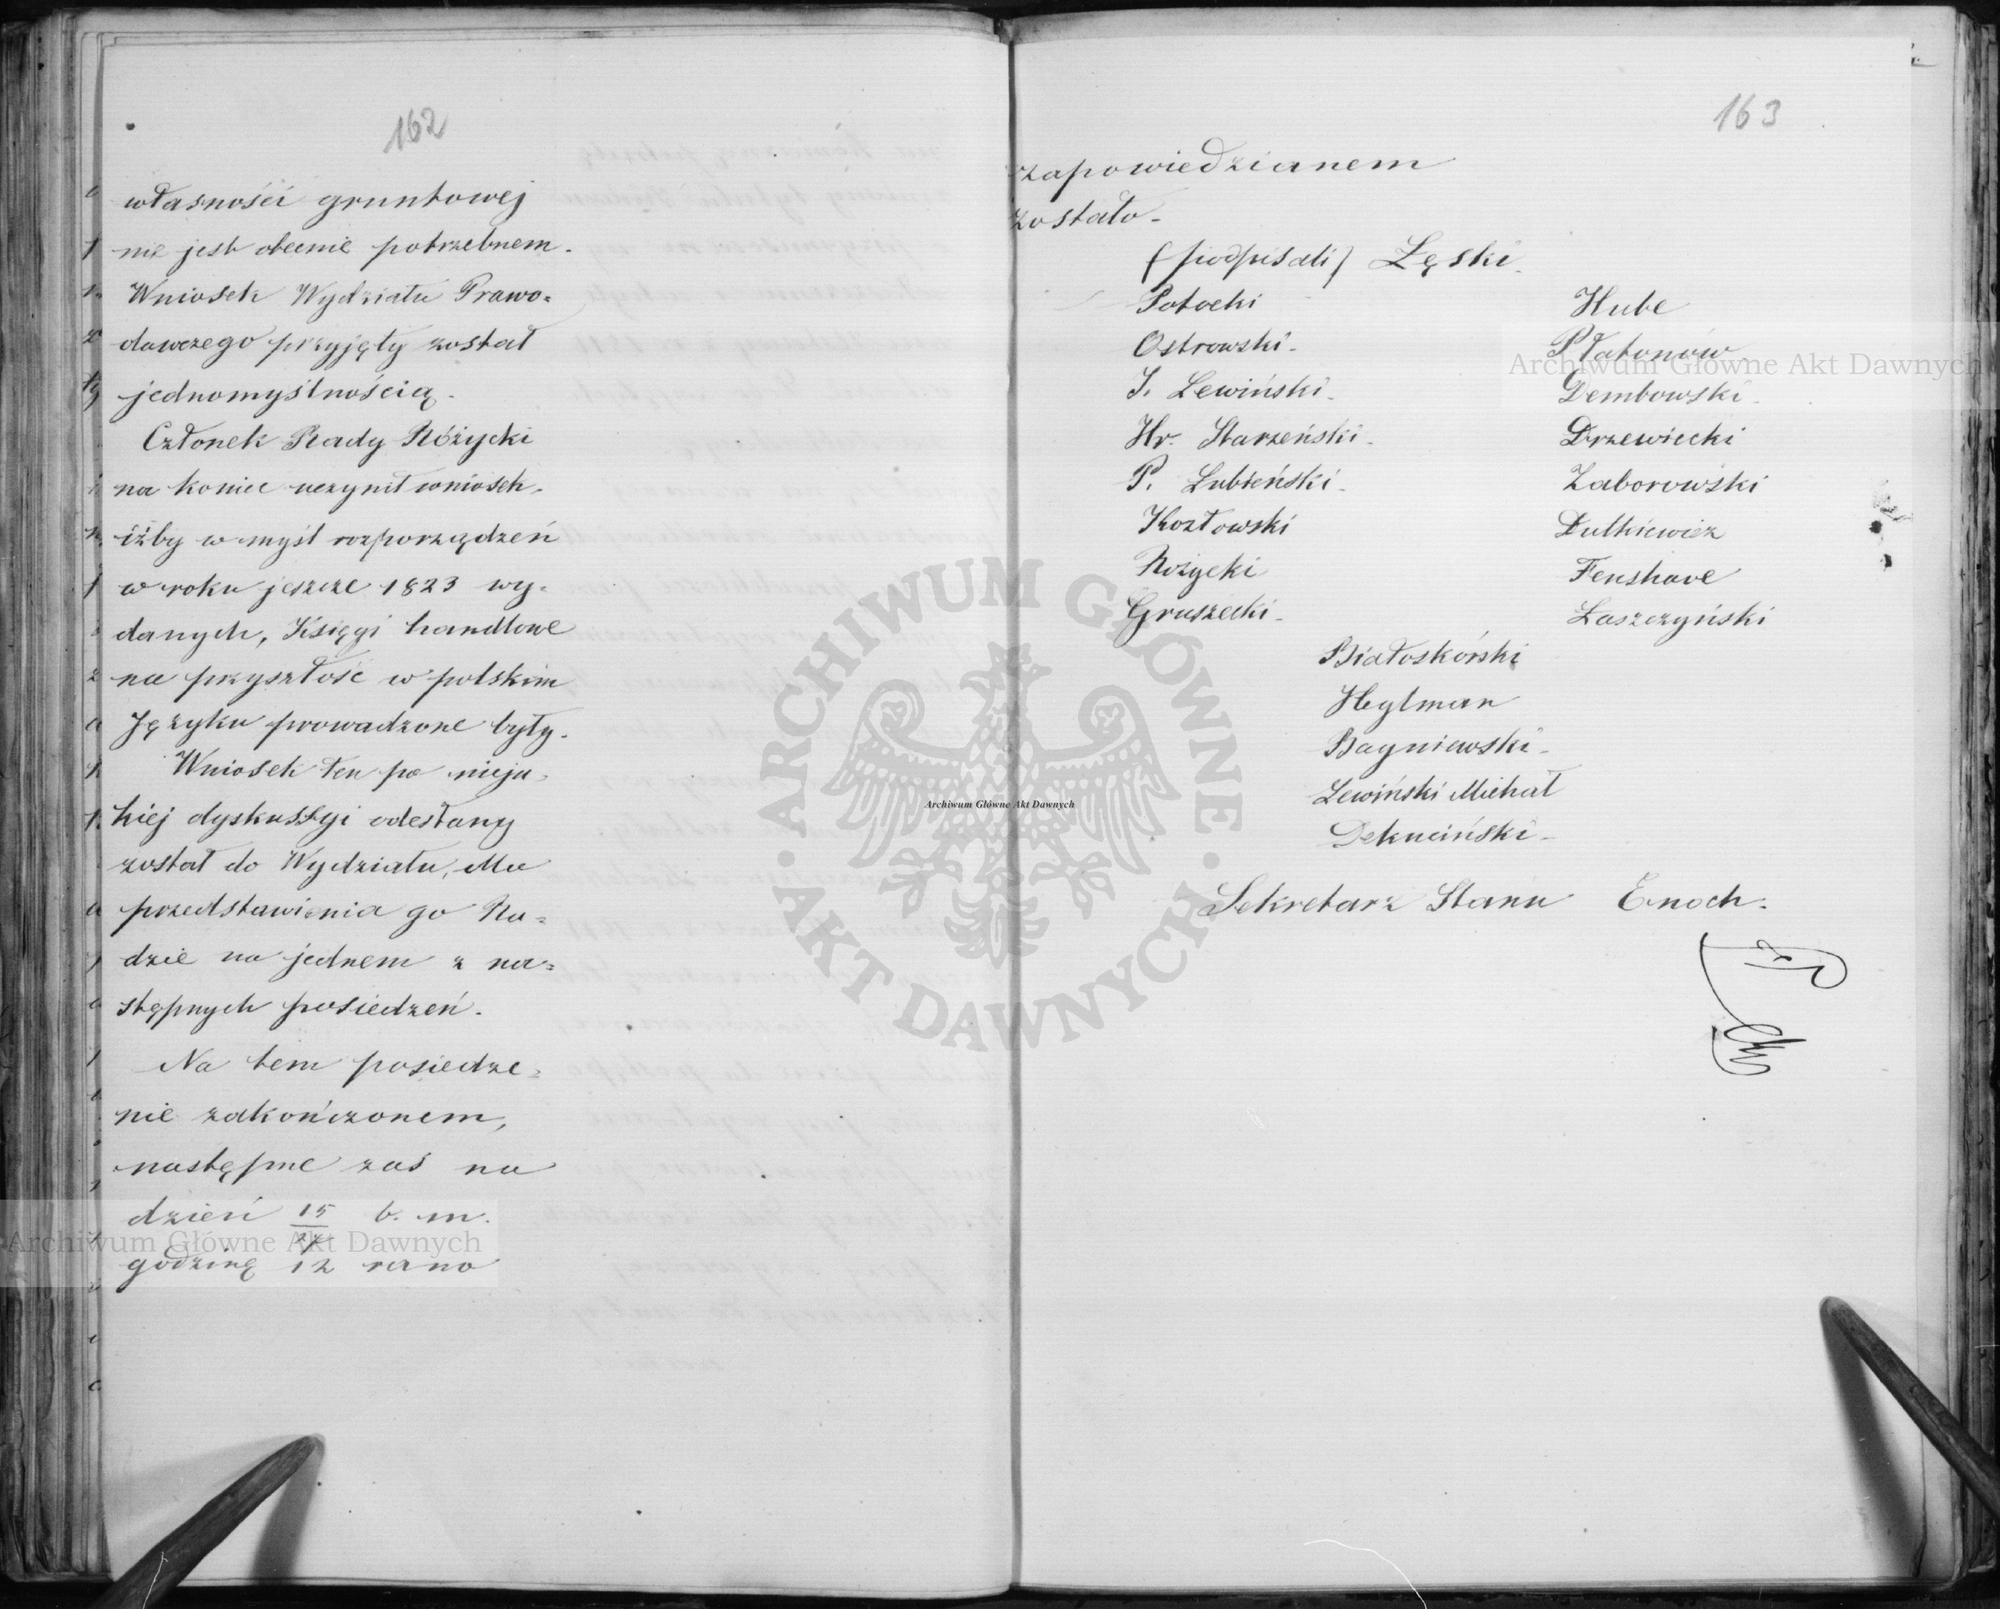 162
własności gruntowej
nie jest obecnie potrzebnem.
Wniosek Wydziału Prawo=
dawczego przyjęty został
jednomyślnością.
Członek Rady Różycki
na koniec uczynił wniosek,
iżby w myśl rozporządzeń
w roku jeszcze 1823 wy=
danych, Księgi handlowe
na przyszłość w polskim
Języku prowadzone były.
Wniosek ten po nieja=
kiej dyskussyi odesłany
został do Wydziału, dla
przedstawienia go Ra=
dzie na jednem z na=
stępnych posiedzeń.
Na tem posiedze=
nie zakończonem,
następne zaś na
dzień 15/27 b. m.
godzinę 12 rano
163
zapowiedzianem
zostało.
(podpisali) Łęski.
Potocki
Ostrowski.
J. Lewiński.
Hr. Starzeński.
P. Łubieński.
Kozłowski
Rożycki
Gruszecki.
Hube
Płatonów
Dembowski.
Drzewiecki
Zaborowski
Dutkiewicz
Fenshave
Łaszczyński
Białoskórski
Heylman
Bagniewski.
Lewiński Michał
Dekuciński.
Sekretarz Stanu Enoch.
Archiwum Główne Akt Dawnych
Archiwum Główne Akt Dawnych
Archiwum Główne Akt Dawnych
ARCHIWUM GŁÓWNE
AKT DAWNYCH